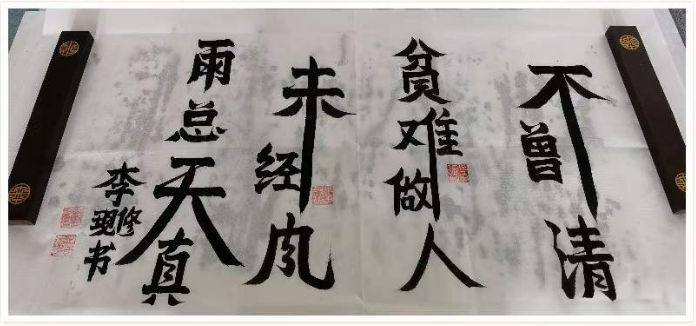 不曾清
贫难做人
未经风
雨总天真
李修现书